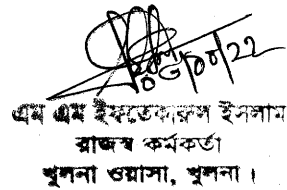 ০৬/১০/২২
এম এম ইফতেকারুল ইসলাম
রাজস্ব কর্মকর্তা
খুলনা ওয়াসা, খুলনা।